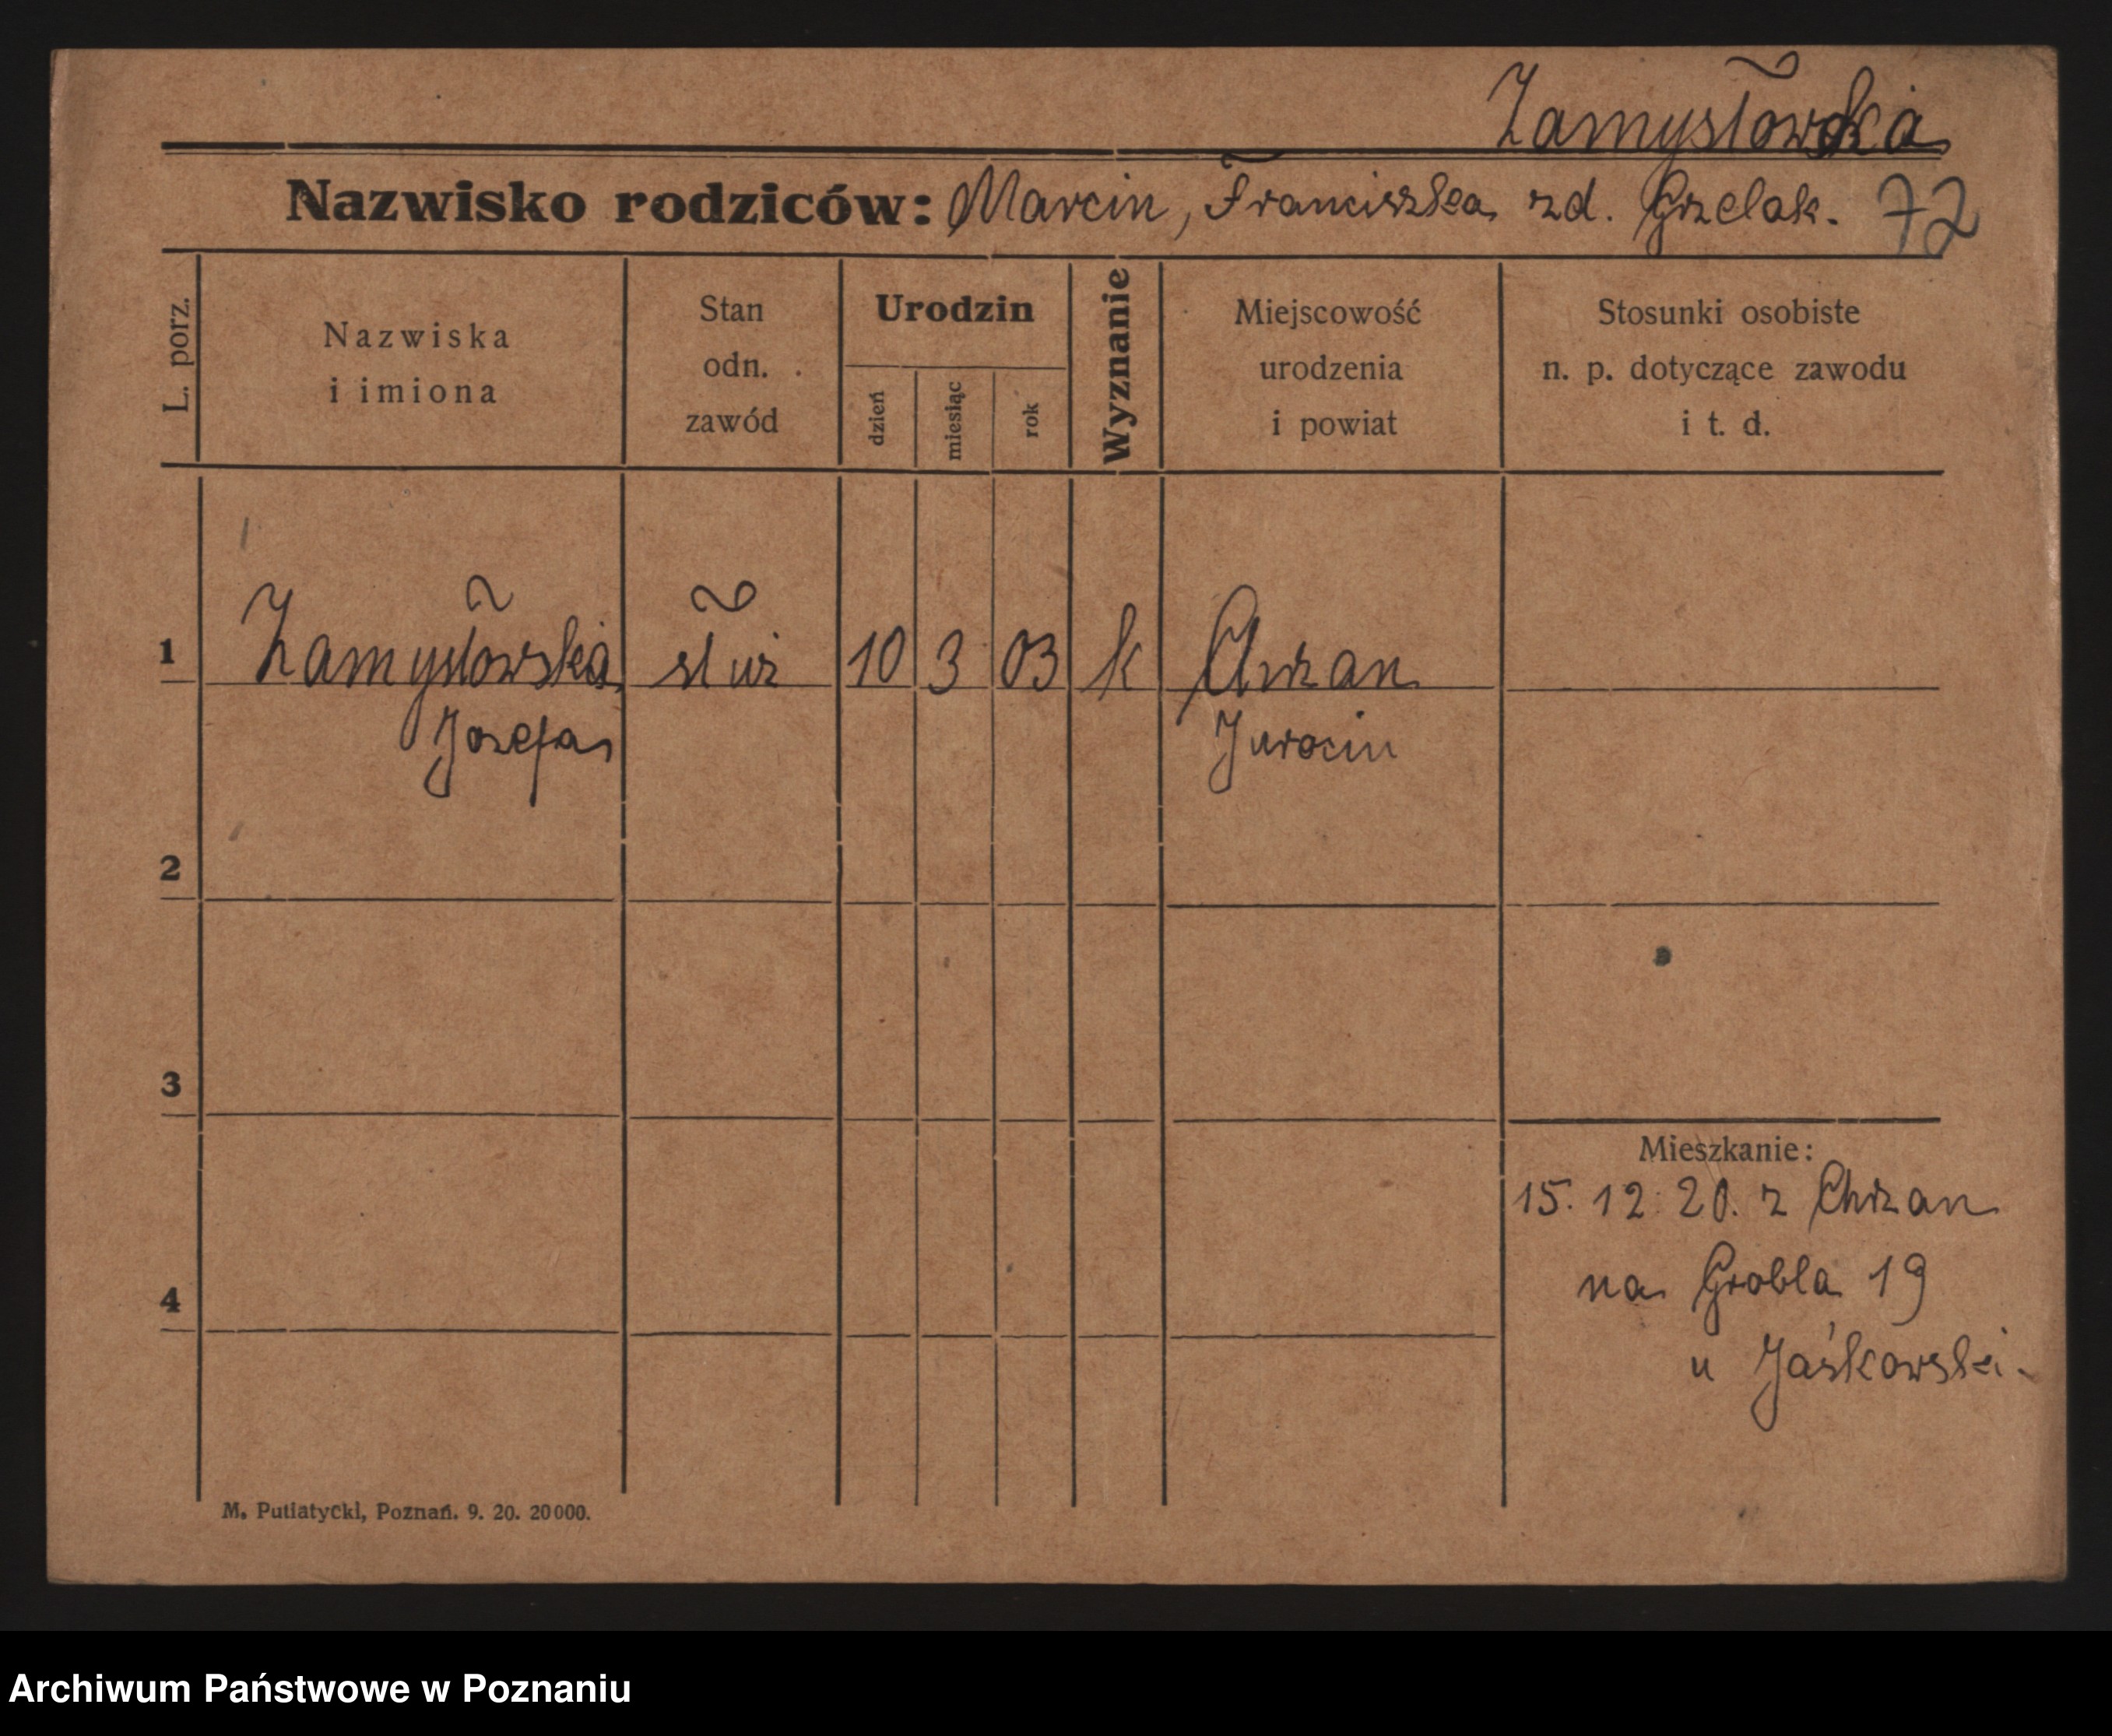 Zamysłowska
Nazwisko rodziców: Marcin, Franciszka zd. Grzelak. 72
L. porz.
Nazwiska
i imiona
Stan
odn.
zawód
Urodzin
dzień
miesiąc
rok
Wyznanie
Miejscowość
urodzenia
i powiat
Stosunki osobiste
n. p. dotyczące zawodu
i t. d.
1 Zamysłowska służ 10 3 03 k Chrzan
Jozefa Jarocin
2
3
Mieszkanie:
15. 12. 20. z Chrzan
na Grobla 19
4
u Jaśkowski.
M. Putiatycki, Poznań. 9. 20. 20000.
Archiwum Państwowe w Poznaniu